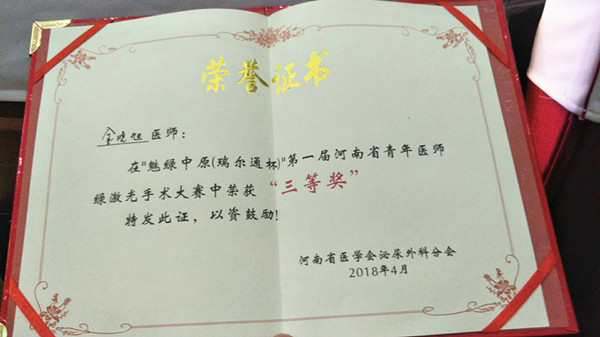 荣誉证书
金晓旭医师：
在"魅绿中原(瑞尔通杯)"第一届河南省青年医师
绿激光手术大赛中荣获 "三等奖"
特发此证，以资鼓励!
河南省医学会泌尿外科分会
2018年4月